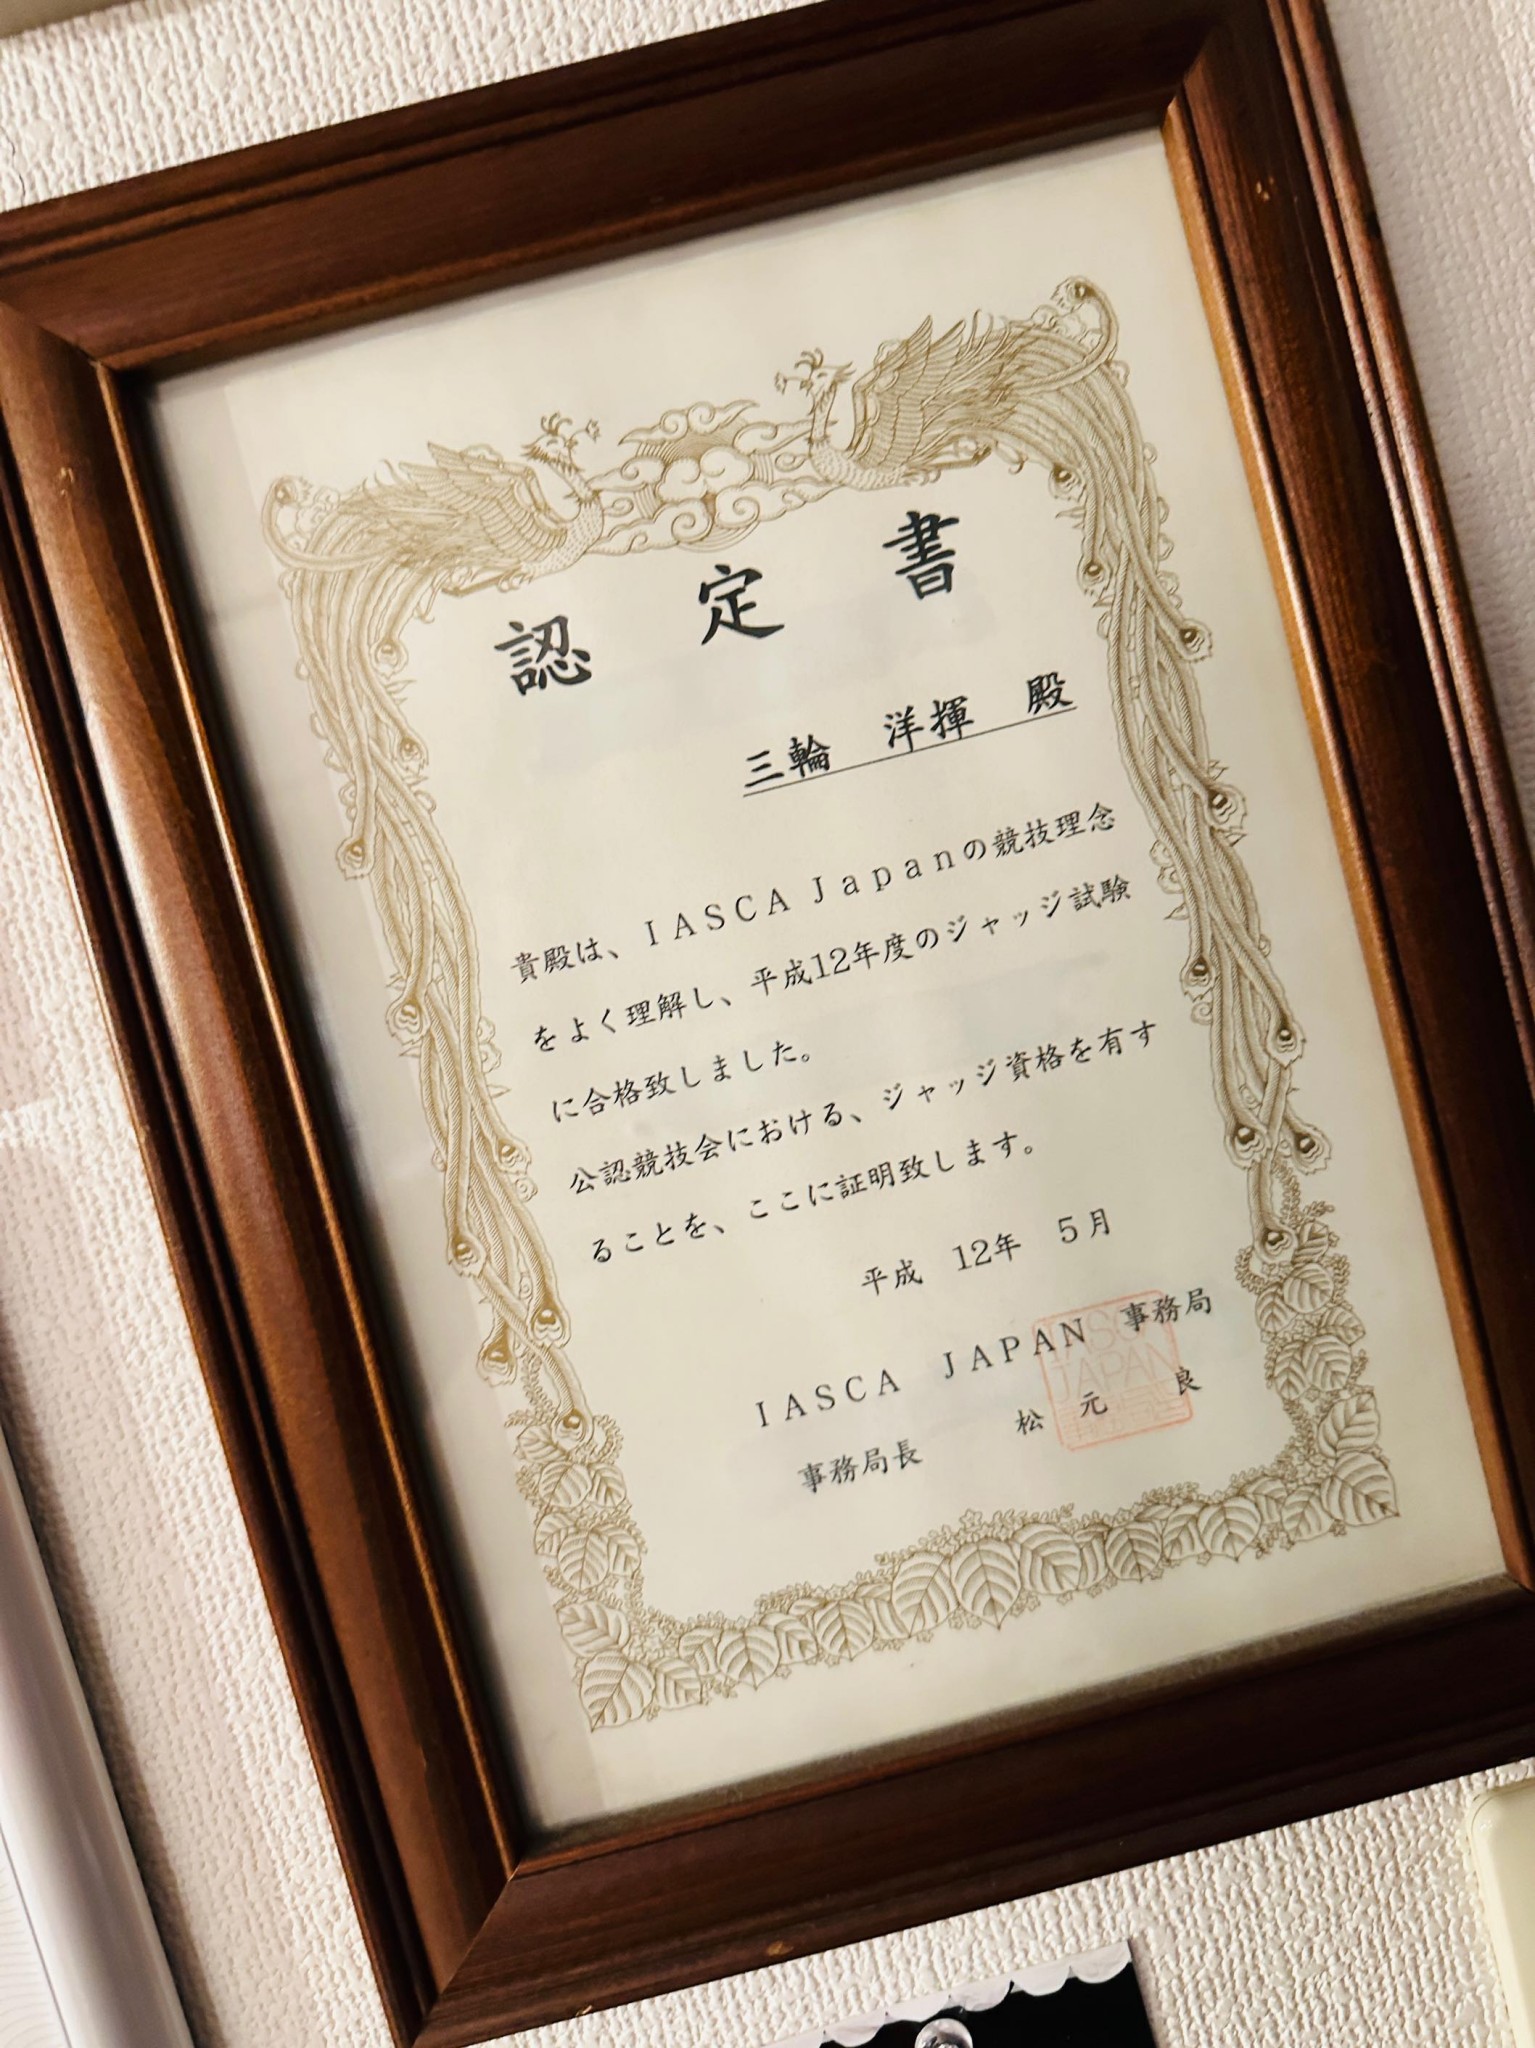 認定書
三輪 洋揮 殿
貴殿は、IASCA Japanの競技理念
をよく理解し、平成12年度のジャッジ試験
に合格致しました。
公認競技会における、ジャッジ資格を有す
ることを、ここに証明致します。
平成 12年 5月
IASCA JAPAN 事務局
事務局長 松元 良
IASCA
JAPAN